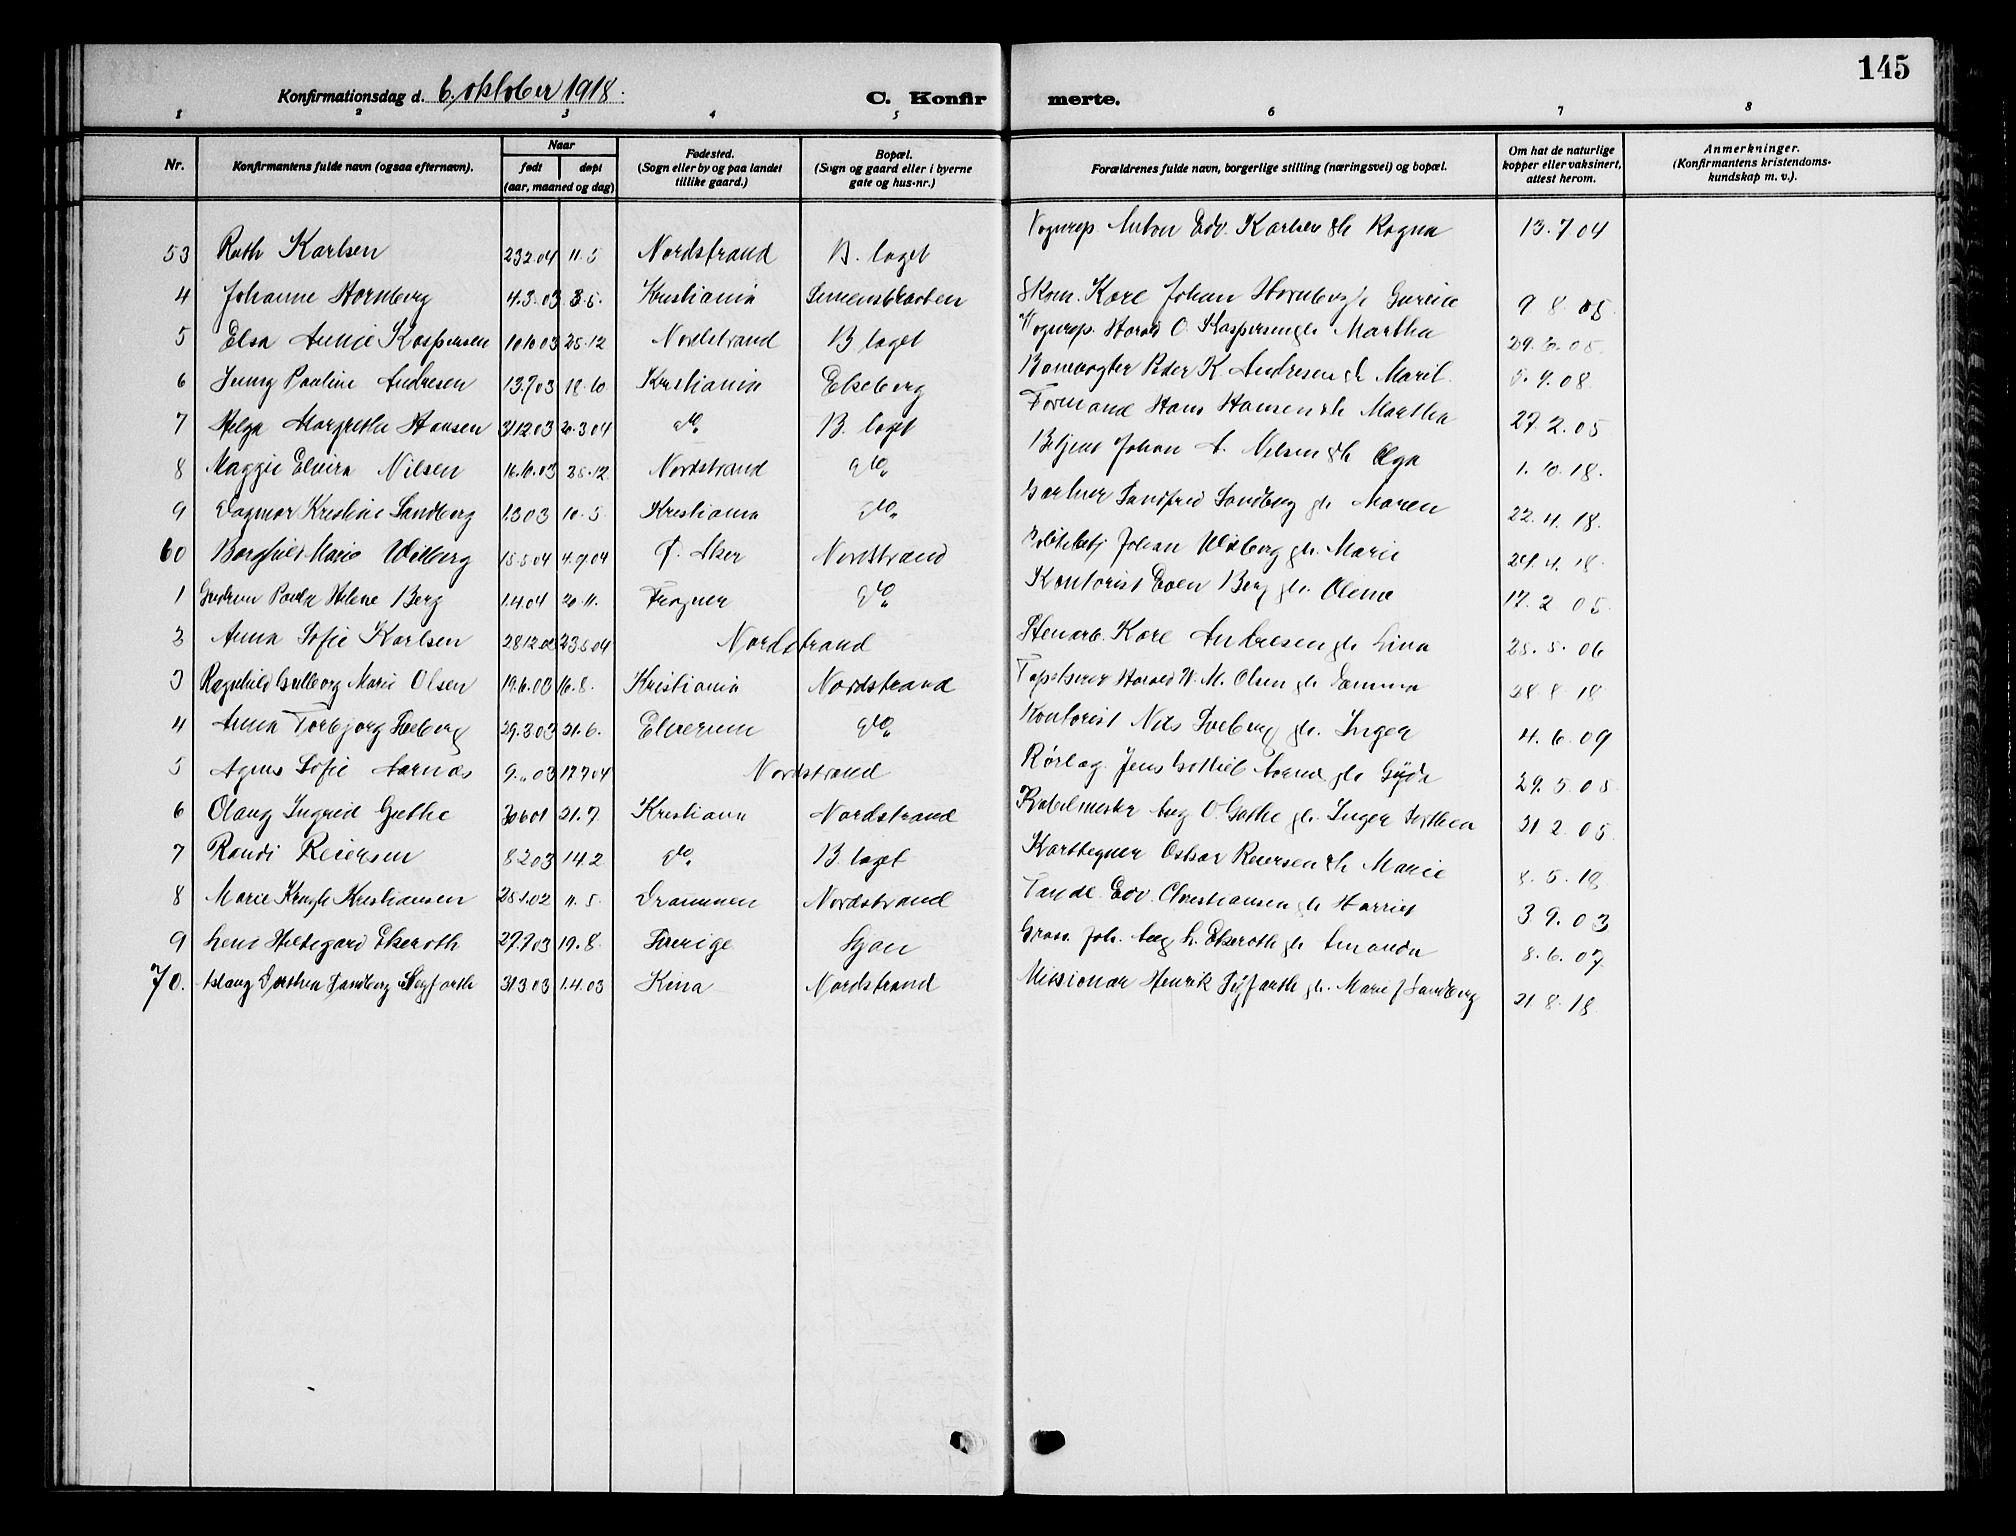 145
Konfirmationsdag d. 6. oktober 1918.
C. Konfirmerte.
1 2 3 4 5 6 7 8
Nr. Konfirmantens fulde navn (ogsaa efternavn). Naar født døpt (aar, maaned og dag) Fødested. (Sogn eller by og paa landet tillike gaard.) Bopæl. (Sogn og gaard eller i byerne gate og hus-nr.) Forældrenes fulde navn, borgerlige stilling (næringsvei) og bopæl. Om hat de naturlige kopper eller vaksinert, attest herom. Anmerkninger. (Konfirmantens kristendoms-kundskap m. v.).
53 Ruth Karlsen 23.2.04 11.5 Nordstrand B. laget Vognrep Anton Edv. Karlsen & h Ragna 13.7 04
4 Johanne Hornberg 4.3.03 3.5. Kristiania Simenstraaten Skom. Karl Johan Hornberg 9 8. 05
5 Elsa Annie Kaspersen 10.10 03 25.12 Nordstrand B. laget Vognrep. Harald O. Kaspersen gh. Martha 29.6.05.
6 Jenny Pauline Andresen 13.7 03 18.10 Kristiania Ekeberg Peder K. Andresen & h Marit 5.9.08
7 Helga Margrethe Hansen 31.12.03 20.3 04 do. B. laget Formand Hans Hansen & h Martha 27.2.05
8 Maggie Elvira Nilsen 16.10.03 25.12. Nordstrand do. Betjent Johan A. Nilsen & h Olga 1.10.18.
9 Dagmar Kristine Sandberg 1.3 03 10.5. Kristiania do. Gartner Sandfred Sandberg gh. Maren 22.4.18.
60 Borghild Marie Wilberg 15.5 04 4.9.04 Ø. Aker Nordstrand Johan Wilberg gh. Marie 24.4.18.
1 Gudrun Paula Helene Berg 1.4.04 20.11. Frogner do. Kontorist Even Berg gh. Oline 17.2 05.
2 Anna Sofie Karlsen 28.12.03 23.5.04 Nordstrand Stenarb. Karl Andresen gh. Lina 25.5.06
3 Ragnhild Gulborg Marie Olsen 19.6.03 16.8. Kristiania Nordstrand Tapetserer Harald W. M. Olsen gh. 28 8 18
4 Anna Torbjørg Sveberg 29.3 03 21.6. Elverum do. Kontorist Nils Sveberg gh. Inga 4.6.09
5 Agnes Sofie Aarnæs 03 17.7 04 Nordstrand Rørlæg. Jens gh. Gyda 29.5.05
6 Olaug Ingrid Gathe 30.6 01 21.7 Kristiania Nordstrand Aug. O. Gathe gh. Inger Dorthea 31 2. 05
7 Randi Reiersen 8.2 03 14.2 do. B. laget Karttegner Oskar Reiersen & h Marie 8.5.18
8 Marie Kragh Kristiansen 25.1.02 11.5. Drammen Nordstrand Tandl. Edv. Christiansen gh. Harriet 3 9. 03
9 Leni Hildegard Ekeroth 27.7 03 19.8. Sverige Ljan Gross. Joh. Aug. L. Ekeroth gh. Amanda 8.6.07
70. Aslaug Dorthea Sandberg Seyfarth 31.3 03 1.4.03 Kina Nordstrand Missionær Henrik Seyfarth gh. Marie f Sandberg 21 8.18